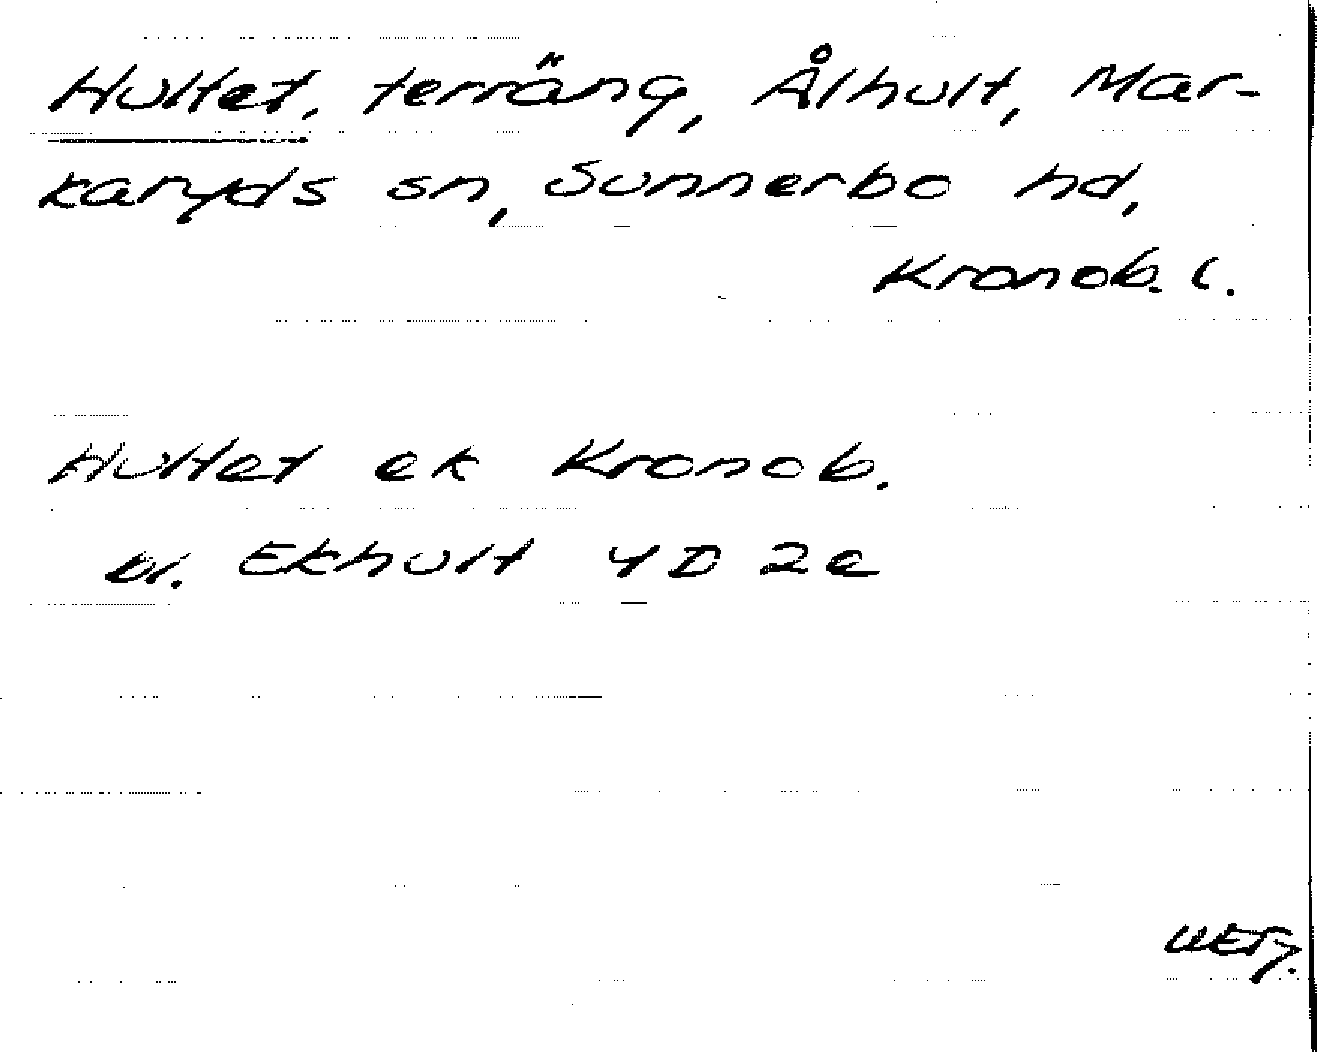 Hultet, terräng, Ålhult, Mar-
karyds sn, Sunnerbo hd,
Kronob. l.
Hultet ek Kronob.
bl. Ekhult 4 D 2e